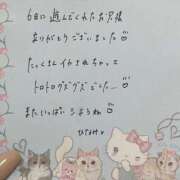 6日に遊んでくれたお兄様
ありがとうございました♡
たっくさんイかされちゃって
トロトログズグズでした…♡
またいっぱいシようね♡
ひなみ♥